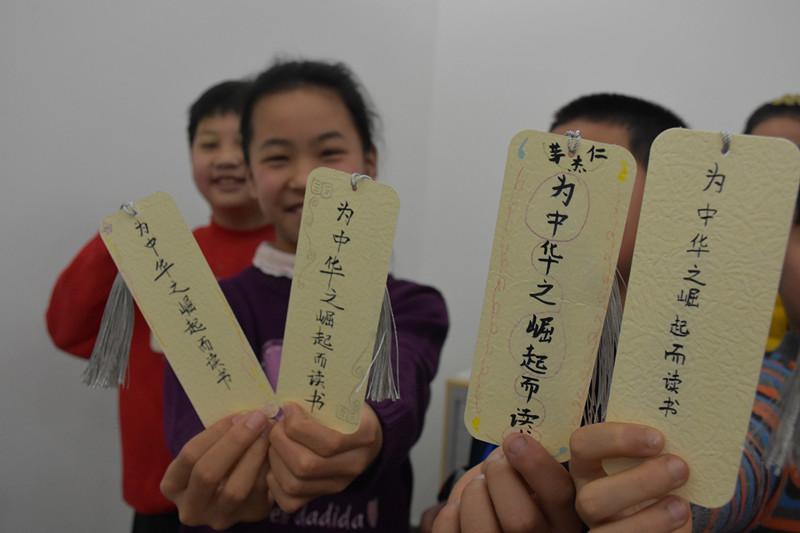 为中华之崛起而读书
为中华之崛起而读书
杰仁
为中华之崛起而读
为中华之崛起而读书
dadida